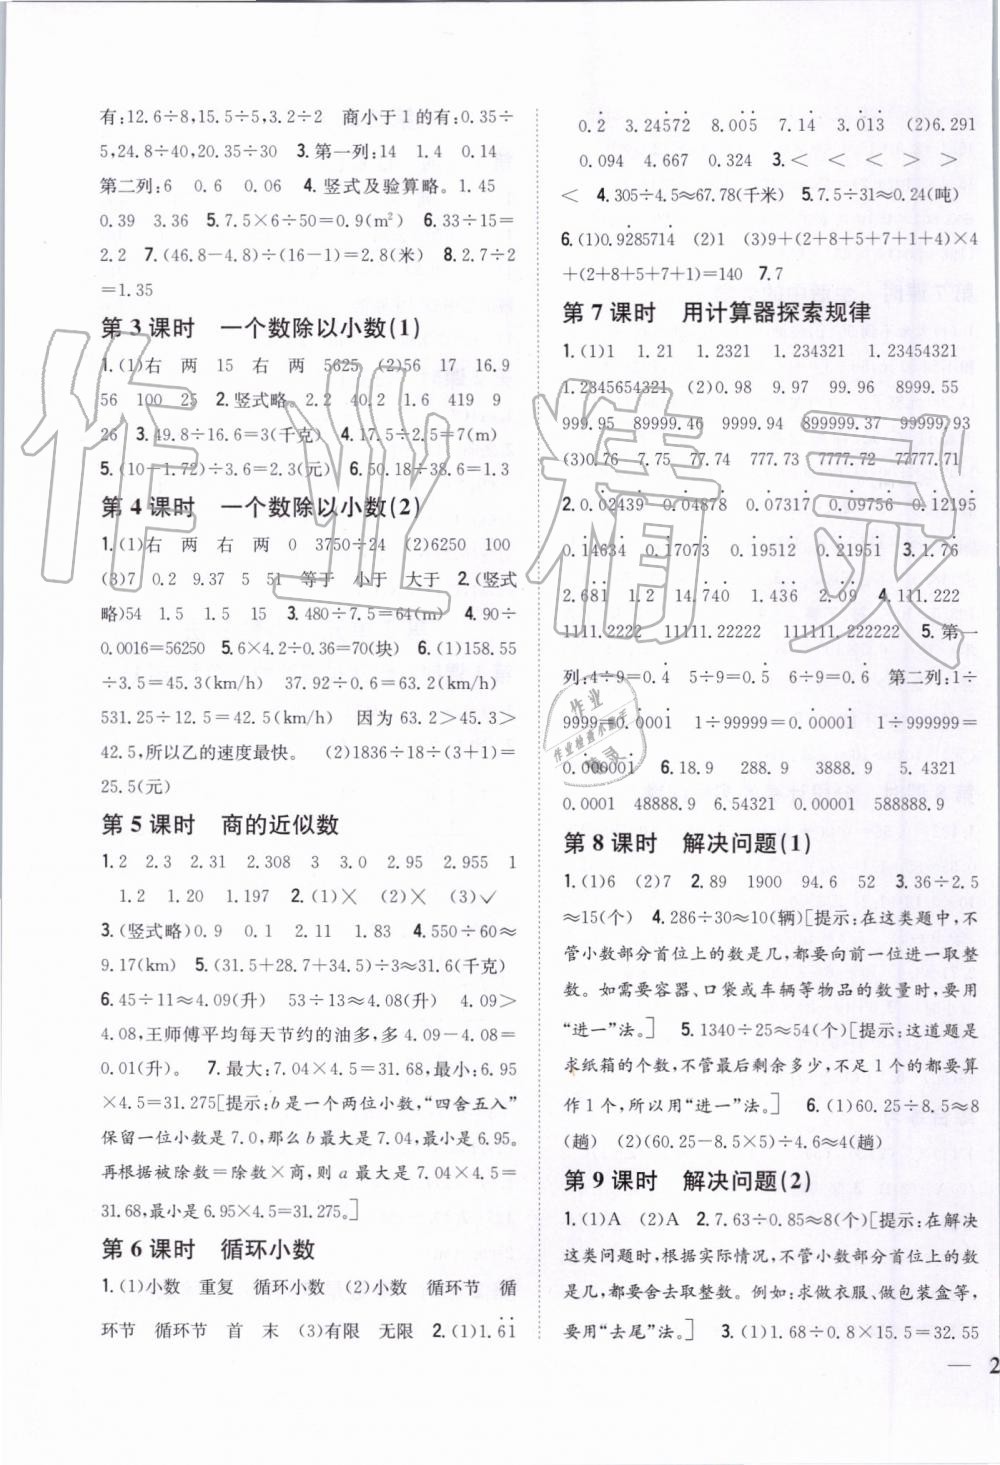 有:12.6÷8,15.5÷5,3.2÷2　商小于1的有:0.35÷
5,24.8÷40,20.35÷30　3.第一列:14　1.4　0.14
第二列:6　0.6　0.06　4.竖式及验算略。1.45
0.39　3.36　5.7.5×6÷50=0.9(m²)　6.33÷15=
2.2　7.(46.8-4.8)÷(16-1)=2.8(米)　8.2.7÷2
=1.35
第3课时　一个数除以小数(1)
1.(1)右　两　15　右　两　5625　(2)56　17　16.9
56　100　25　2.竖式略。2.2　40.2　1.6　419　9
26　3.49.8÷16.6=3(千克)　4.17.5÷2.5=7(m)
5.(10-1.72)÷3.6=2.3(元)　6.50.18÷38.6=1.3
第4课时　一个数除以小数(2)
1.(1)右　两　右　两　0　3750÷24　(2)6250　100
(3)7　0.2　9.37　5　51　等于　小于　大于　2.(竖式
略)54　1.5　1.5　15　3.480÷7.5=64(m)　4.90÷
0.0016=56250　5.6×4.2÷0.36=70(块)　6.(1)158.55
÷3.5=45.3(km/h)　37.92÷0.6=63.2(km/h)
531.25÷12.5=42.5(km/h)　因为63.2>45.3>
42.5,所以乙的速度最快。　(2)1836÷18÷(3+1)=
25.5(元)
第5课时　商的近似数
1.2　2.3　2.31　2.308　3　3.0　2.95　2.955　1
1.2　1.20　1.197　2.(1)×　(2)×　(3)√
3.(竖式略)0.9　0.1　2.11　1.83　4.550÷60≈
9.17(km)　5.(31.5+28.7+34.5)÷3≈31.6(千克)
6.45÷11≈4.09(升)　53÷13≈4.08(升)　4.09>
4.08,王师傅平均每天节约的油多,多4.09-4.08=
0.01(升)。　7.最大:7.04×4.5=31.68,最小:6.95
×4.5=31.275[提示:b是一个两位小数,“四舍五入”
保留一位小数是7.0,那么b最大是7.04,最小是6.95。
再根据被除数=除数×商,则a最大是7.04×4.5=
31.68,最小是6.95×4.5=31.275。]
第6课时　循环小数
1.(1)小数　重复　循环小数　(2)小数　循环节　循
环节　循环节　首　末　(3)有限　无限　2.(1)1.6̇1̇
0.2̇　3.24̇572̇　8.0̇05̇　7.1̇4　3.0̇13̇　(2)6.291
0.094　4.667　0.324　3.<　<　<　>　>
<　4.305÷4.5≈67.78(千米)　5.7.5÷31≈0.24(吨)
6.(1)0.9̇28571̇4̇　(2)1　(3)9+(2+8+5+7+1+4)×4
+(2+8+5+7+1)=140　7.7
第7课时　用计算器探索规律
1.(1)1　1.21　1.2321　1.234321　1.23454321
1.2345654321　(2)0.98　9.97　99.96　8999.55
999.95　89999.46　9999.94　899999.37　99999.93
(3)0.76　7.75　77.74　777.73　7777.72　77777.71
2.0.0̇2439̇　0.0̇4878̇　0.0̇7317̇　0.0̇9756̇　0.1̇2195̇
0.1̇4634̇　0.1̇7073̇　0.1̇9512̇　0.2̇1951̇　3.1.7̇6̇
2.6̇81̇　1.2̇　14.7̇40̇　1.4̇36̇　12.7̇　4.111.222
1111.2222　11111.22222　111111.222222　5.第一
列:4÷9=0.4̇　5÷9=0.5̇　6÷9=0.6̇　第二列:1÷
9999=0.0̇001̇　1÷99999=0.0̇0001̇　1÷999999=
0.0̇00001̇　6.18.9　288.9　3888.9　5.4321
0.0001　48888.9　6.54321　0.00001　588888.9
第8课时　解决问题(1)
1.(1)6　(2)7　2.89　1900　94.6　52　3.36÷2.5
≈15(个)　4.286÷30≈10(辆)[提示:在这类题中,不
管小数部分首位上的数是几,都要向前一位进一取整
数。如需要容器、口袋或车辆等物品的数量时,要用
“进一”法。]　5.1340÷25≈54(个)[提示:这道题是
求纸箱的个数,不管最后剩余多少,不足1个的都要算
作1个,所以用“进一”法。]　6.(1)60.25÷8.5≈8
(趟)　(2)(60.25-8.5×5)÷4.6≈4(趟)
第9课时　解决问题(2)
1.(1)A　(2)A　2.7.63÷0.85≈8(个)[提示:在解决
这类问题时,根据实际情况,不管小数部分首位上的数
是几,都要舍去取整数。例如:求做衣服、做包装盒等,
要用“去尾”法。]　3.(1)1.68÷0.8×15.5=32.55
— 2
作业精灵
作业
作业检查小能手
精灵